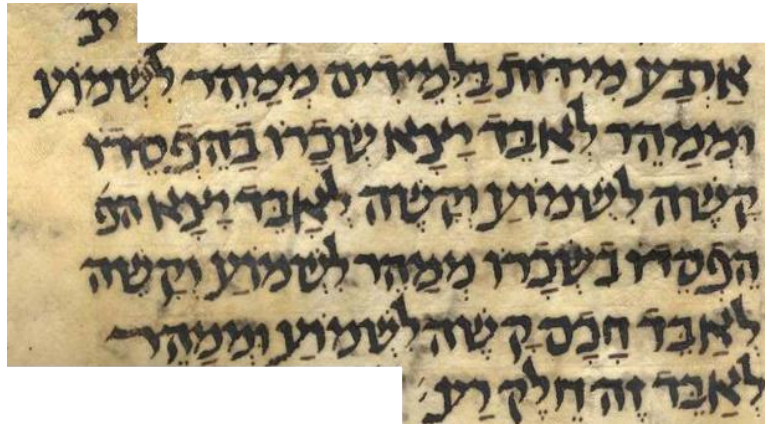 יב
אַרְבַּע מִידּוֹת בַּלְּמֵידִים מְמַהֵר לִשְׁמוֹעַ
וּמְמַהֵר לְאַבֵּד יָצָא שְׂכָרוֹ בְּהֶפְסֵדוֹ
קָשֶׁה לִשְׁמוֹעַ וְקָשֶׁה לְאַבֵּד יָצָא הפ
הֶפְסֵדוֹ בִּשְׂכָרוֹ מְמַהֵר לִשְׁמוֹעַ וְקָשֶׁה
לְאַבֵּד חָכָם קָשֶׁה לִשְׁמוֹעַ וּמְמַהֵר
לְאַבֵּד זֶה חֵלֶק רַע